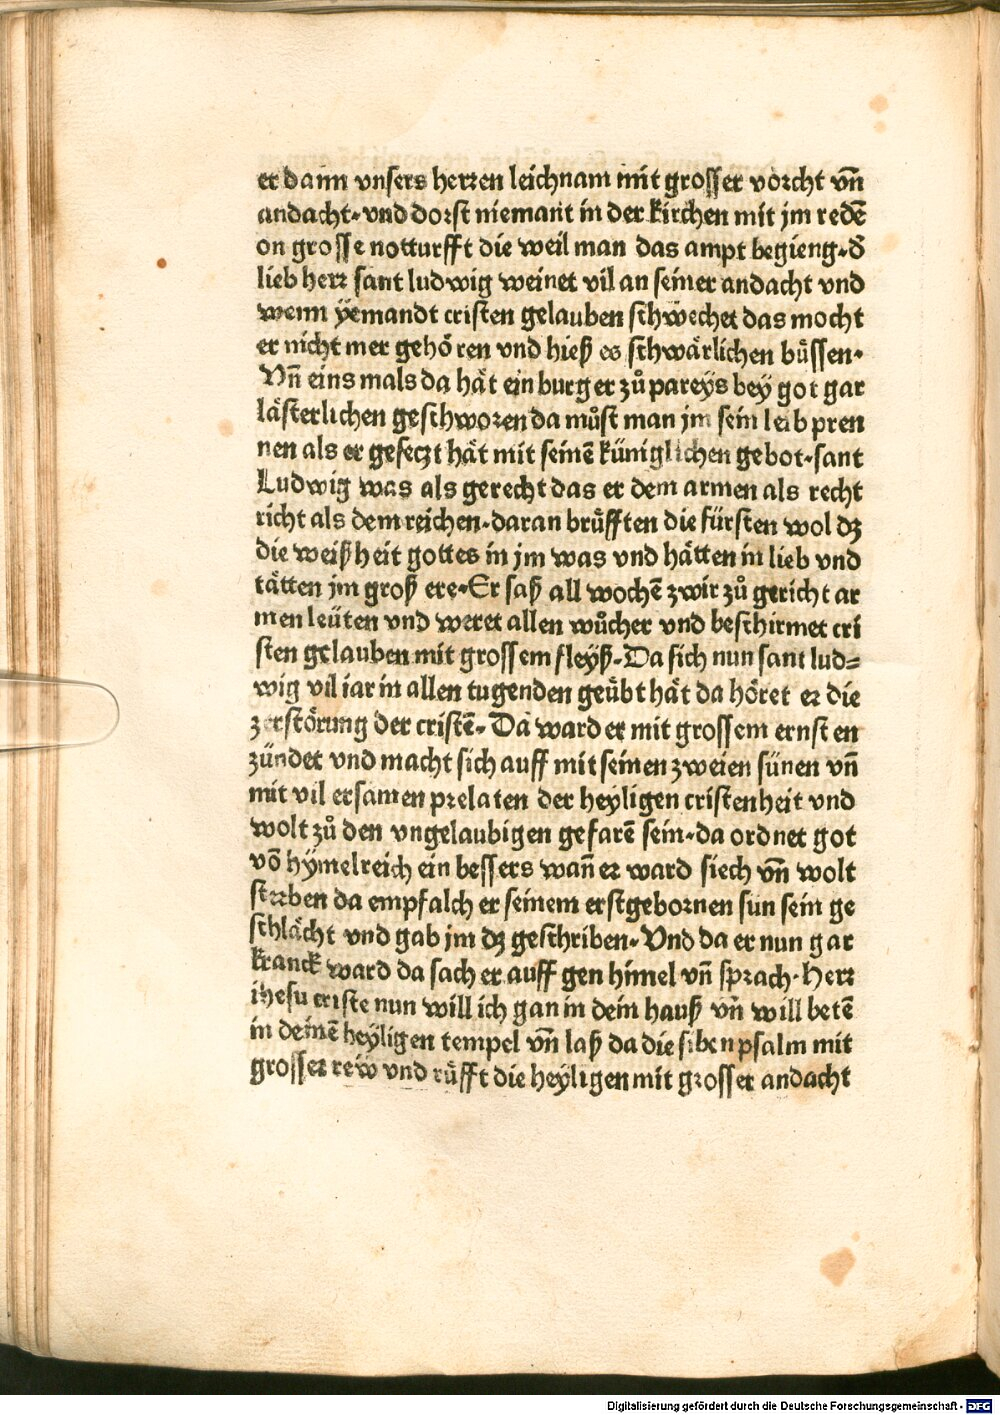 er dann vnsers herren leichnam mit grosser vorcht vn̄
andacht·vnd dorst niemant in der kirchen mit jm redē
on grosse notturfft die weil man das ampt begieng·d̕
lieb herr sant ludwig weinet vil an seiner andacht vnd
wenn ÿemandt cristen gelauben schwechet das mocht
er nicht mer gehören vnd hieß es schwärlichen büssen·
Vn̄ eins mals da hät ein burger zů pareÿs beÿ got gar
lästerlichen geschworen da můst man jm sein leib pren
nen als er geseczt hät mit seinē küniglichen gebot·sant
Ludwig was als gerecht das er dem armen als recht
richt als dem reichen·daran brüfften die fürsten wol dz
die weißheit gottes in jm was vnd hätten in lieb vnd
tätten jm groß ere·Er saß all wochē zwir zů gericht ar
men leüten vnd weret allen wůcher vnd beschirmet cri
sten gelauben mit grossem fleÿß·Da sich nun sant lud=
wig vil iar in allen tugenden geübt hät da höret er die
zerstörung der cristē·Da ward er mit grossem ernst en
zündet vnd macht sich auff mit seinen zweien sünen vn̄
mit vil ersamen prelaten der heyligen cristenheit vnd
wolt zů den vngelaubigen gefarē sein·da ordnet got
vō hÿmelreich ein bessers wan̄ er ward siech vn̄ wolt
sterben da empfalch er seinem erstgebornen sun sein ge
schlächt vnd gab jm dz geschriben·Vnd da er nun gar
kranck ward da sach er auff gen himel vn̄ sprach·Herr
ihesu criste nun will ich gan in dein hauß vn̄ will betē
in deinē heyligen tempel vn̄ laß da die siben psalm mit
grosser rew vnd rüfft die heyligen mit grosser andacht
Digitalisierung gefördert durch die Deutsche Forschungsgemeinschaft - DFG